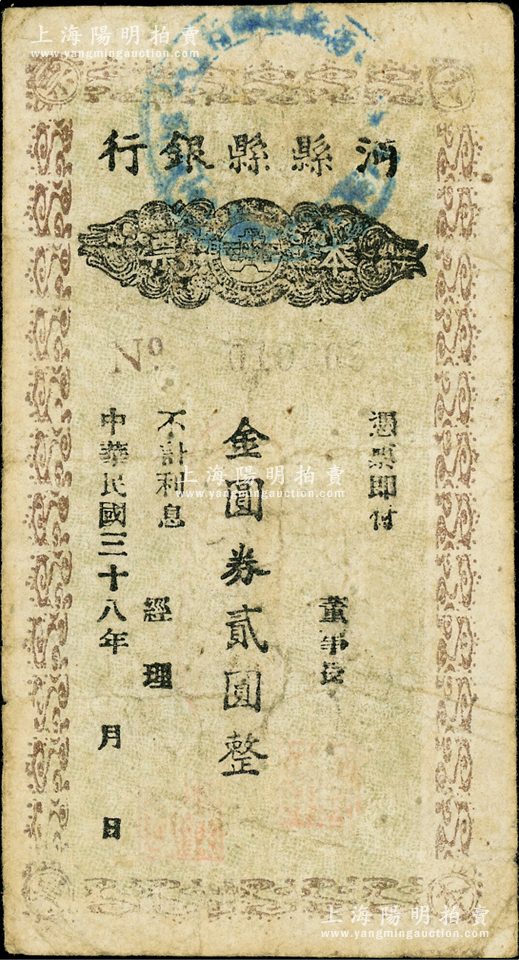 上海陽明拍賣
www.yangmingauction.com
沔縣縣銀行
本票
No
憑票即付
董事長
金圓券貳圓整
不計利息
經理
中華民國三十八年 月 日
上海陽明拍賣
www.yangmingauction.com
上海陽明拍賣
www.yangmingauction.com